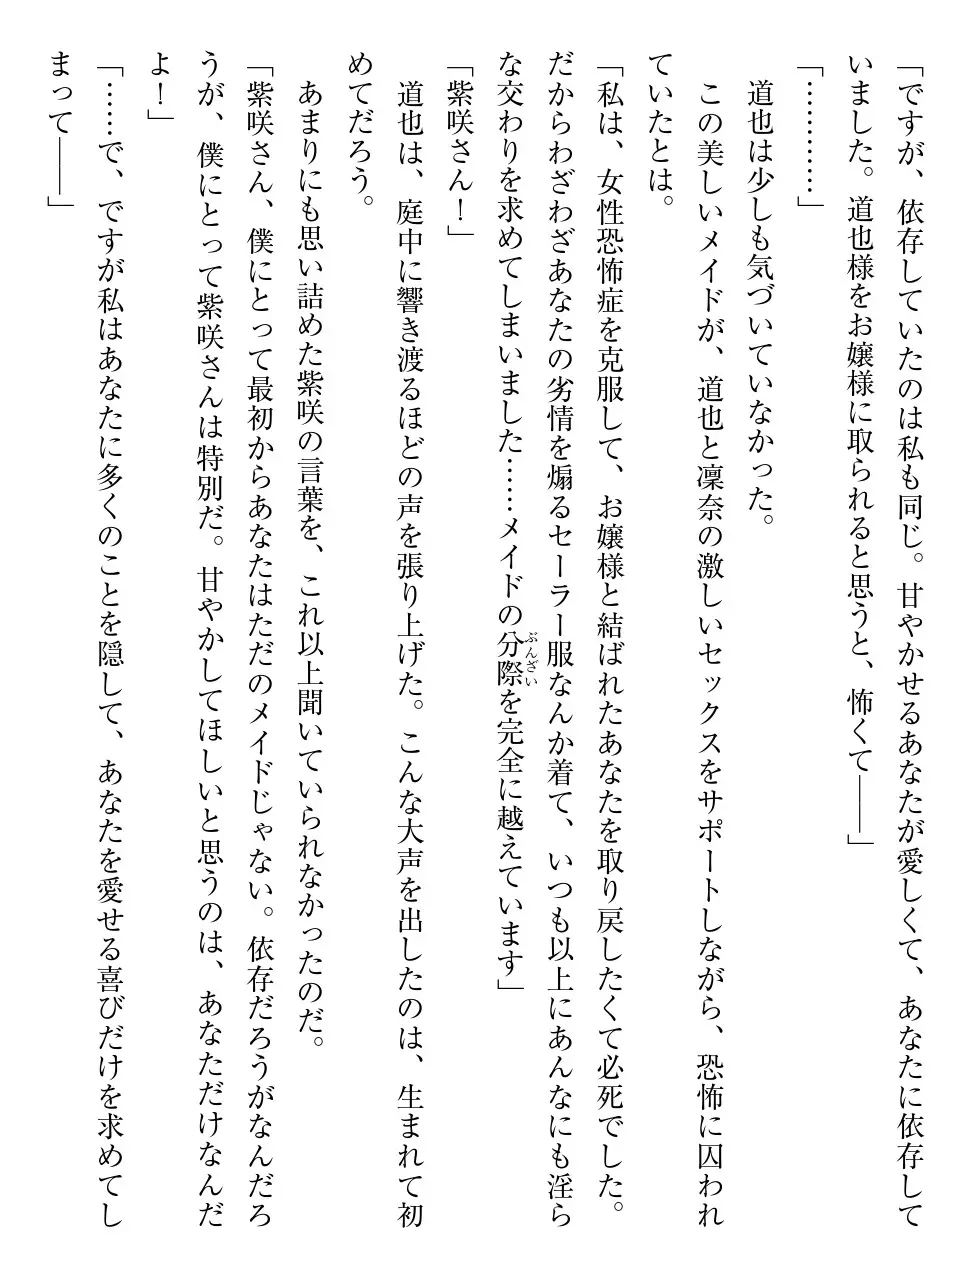 「ですが、依存していたのは私も同じ。甘やかせるあなたが愛しくて、あなたに依存して
いました。道也様をお嬢様に取られると思うと、怖くて――」
「…………」
　道也は少しも気づいていなかった。
　この美しいメイドが、道也と凜奈の激しいセックスをサポートしながら、恐怖に囚われ
ていたとは。
「私は、女性恐怖症を克服して、お嬢様と結ばれたあなたを取り戻したくて必死でした。
だからわざわざあなたの劣情を煽るセーラー服なんか着て、いつも以上にあんなにも淫ら
な交わりを求めてしまいました……メイドの分際ぶんざいを完全に越えています」
「紫咲さん！」
　道也は、庭中に響き渡るほどの声を張り上げた。こんな大声を出したのは、生まれて初
めてだろう。
　あまりにも思い詰めた紫咲の言葉を、これ以上聞いていられなかったのだ。
「紫咲さん、僕にとって最初からあなたはただのメイドじゃない。依存だろうがなんだろ
うが、僕にとって紫咲さんは特別だ。甘やかしてほしいと思うのは、あなただけなんだ
よ！」
「……で、ですが私はあなたに多くのことを隠して、あなたを愛せる喜びだけを求めてし
まって――」